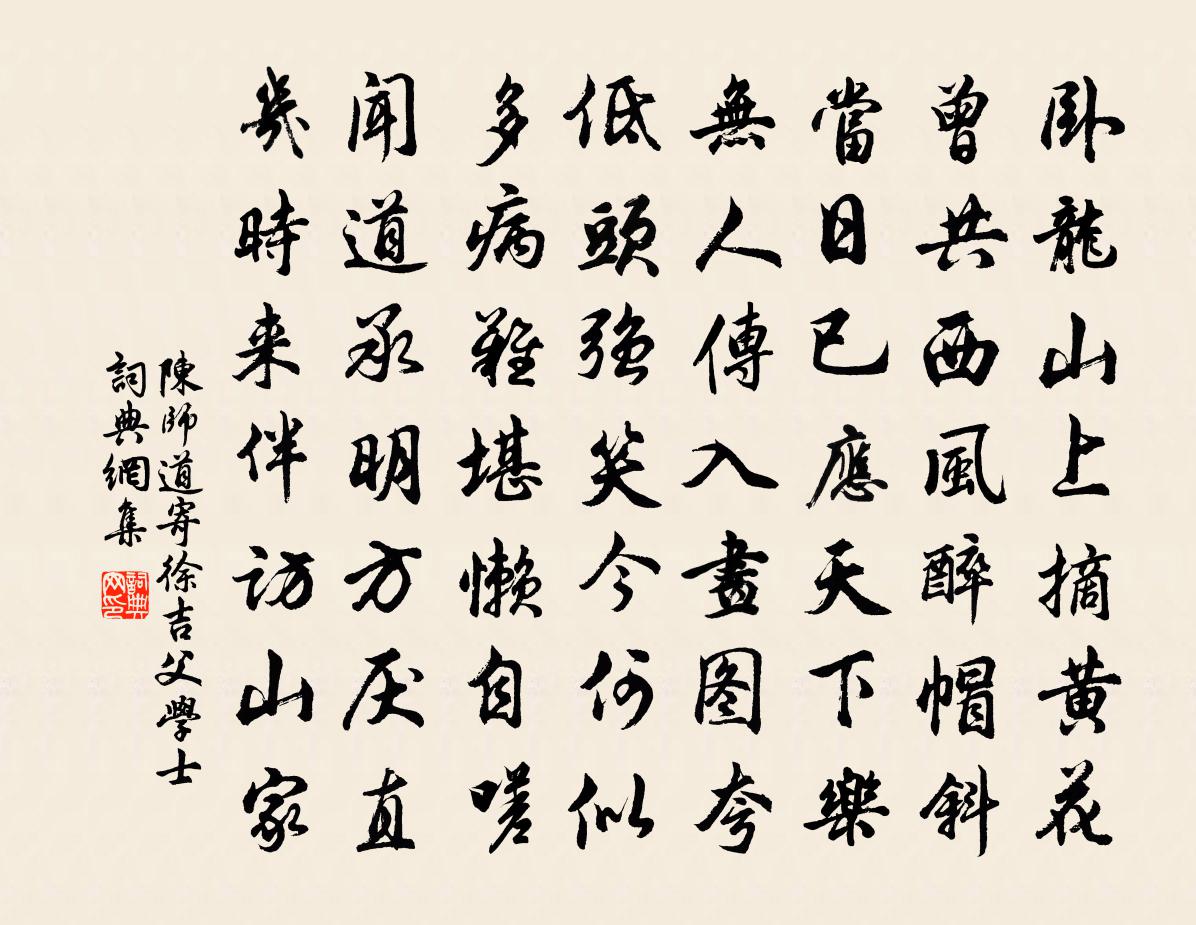 臥龍山上摘黄花
曾共西風醉帽斜
當日已應天下樂
無人傳入畫图夸
低頭強笑今何似
多病難堪懒自嗟
闻道承明方厌直
幾時来伴访山家
陳師道寄徐吉父學士
詞典網集
詞典
网印